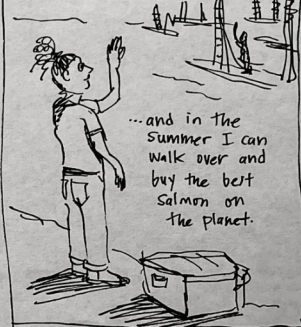 ...and in the
summer I can
walk over and
buy the best
salmon on
the planet.